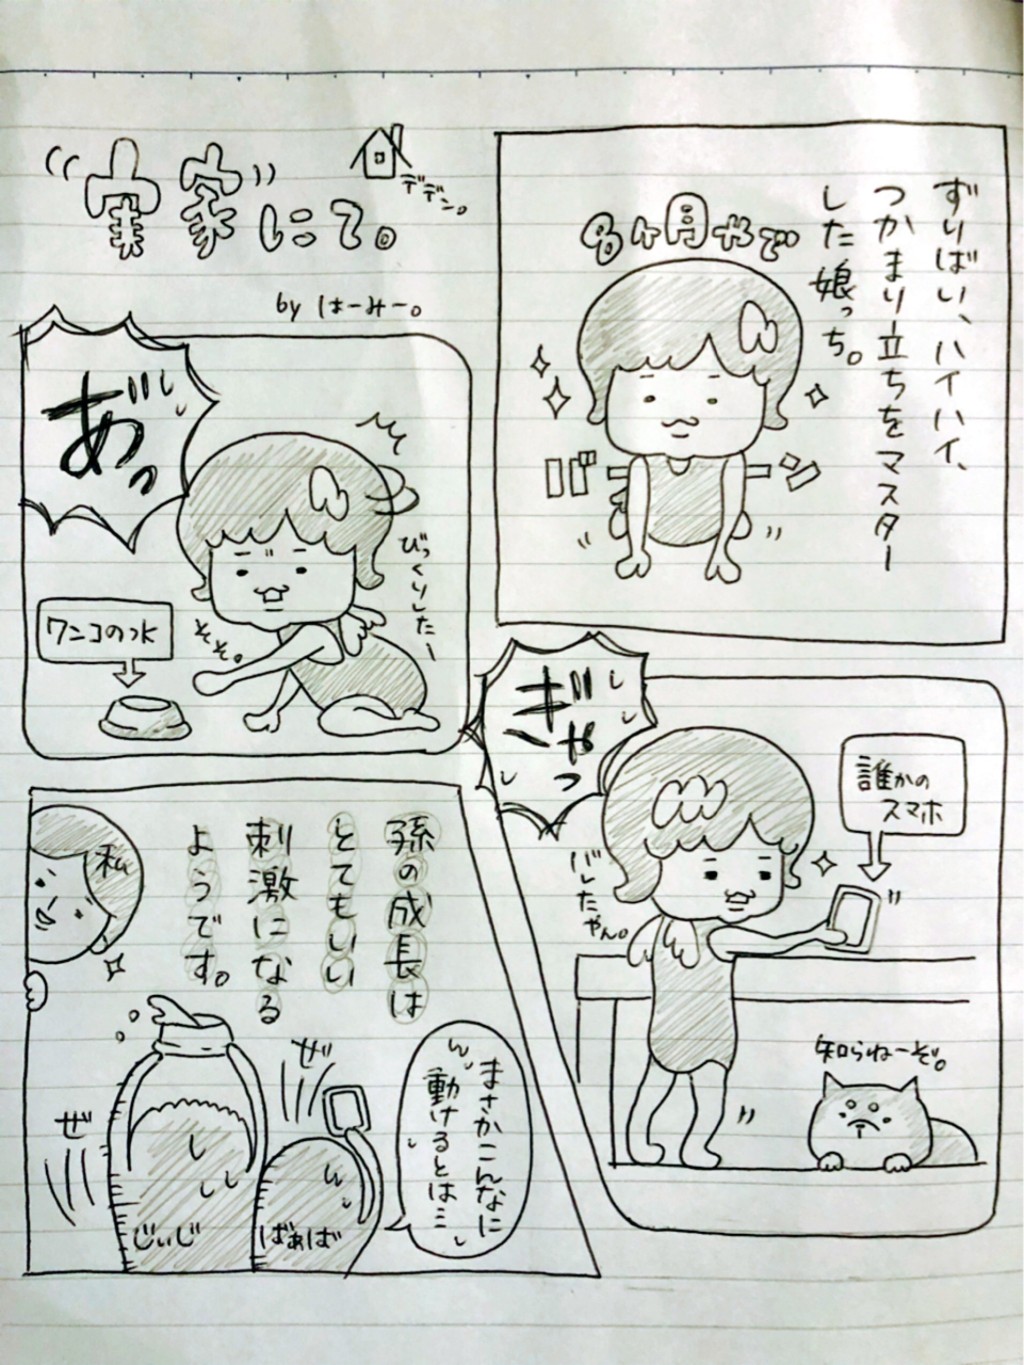 "実家"にて。
デデン。
by はーみー。
ずりばい、ハイハイ、
つかまり立ちをマスター
した娘っち。
8ヶ月やで
バーン
あ"っ
びっくりしたー
そそ。
ワンコの水
ぎゃっ
誰かの
スマホ
バレたやん。
知らねーぞ。
孫の成長は
とてもいい
刺激になる
ようです。
私
まさかこんなに
動けるとは…
ん
ぜ
ぜ
じぃじ
ばぁば